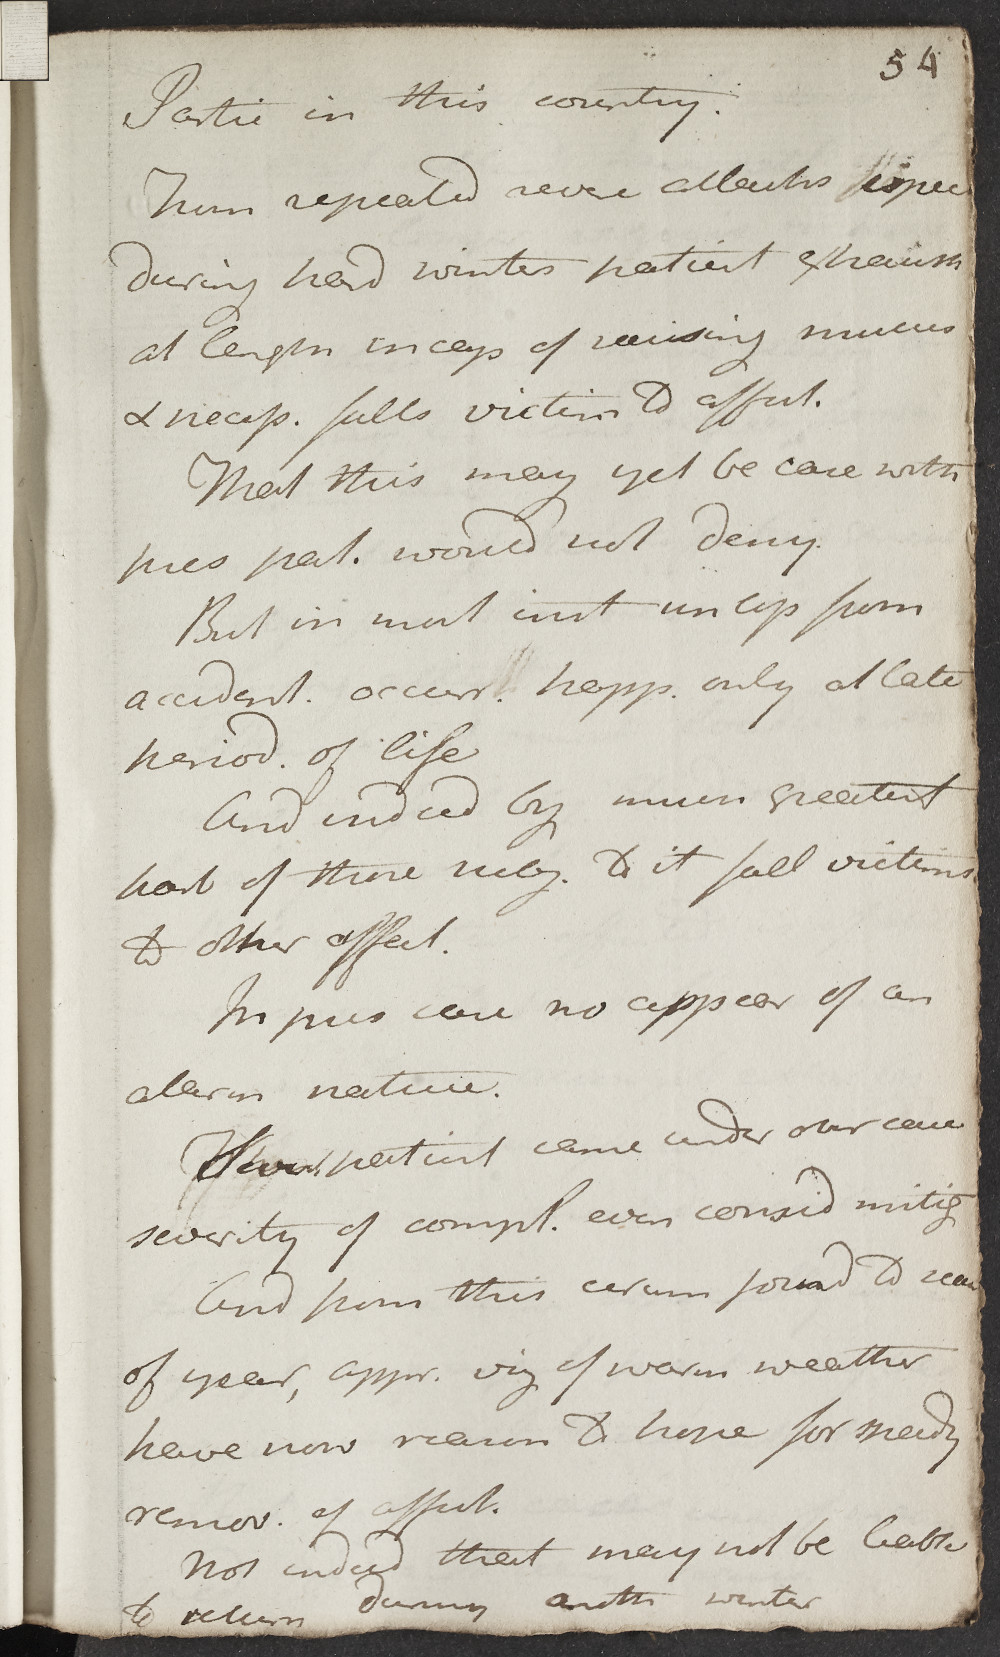 54
Partic in this country.
From repeated severe attacks espec
during hard winters patient exhaust
at length incap of raising mucus
& necess. falls victim to affect.
That this may yet be case with
pres pat. would not deny.
But in most inst unless from
accident. occurr. happ. only at late
period. of life
And indeed by much greatest
part of those subj. to it fall victims
to other affect.
In pres case no appear of an
alarm nature.
When patient came under our care
severity of compl. even consid mitig
And from this circum join'd to seas
of year, appr. viz of warm weather
have now reason to hope for speedy
remov. of affect.
Not indeed that may not be liable
to return during anoth winter